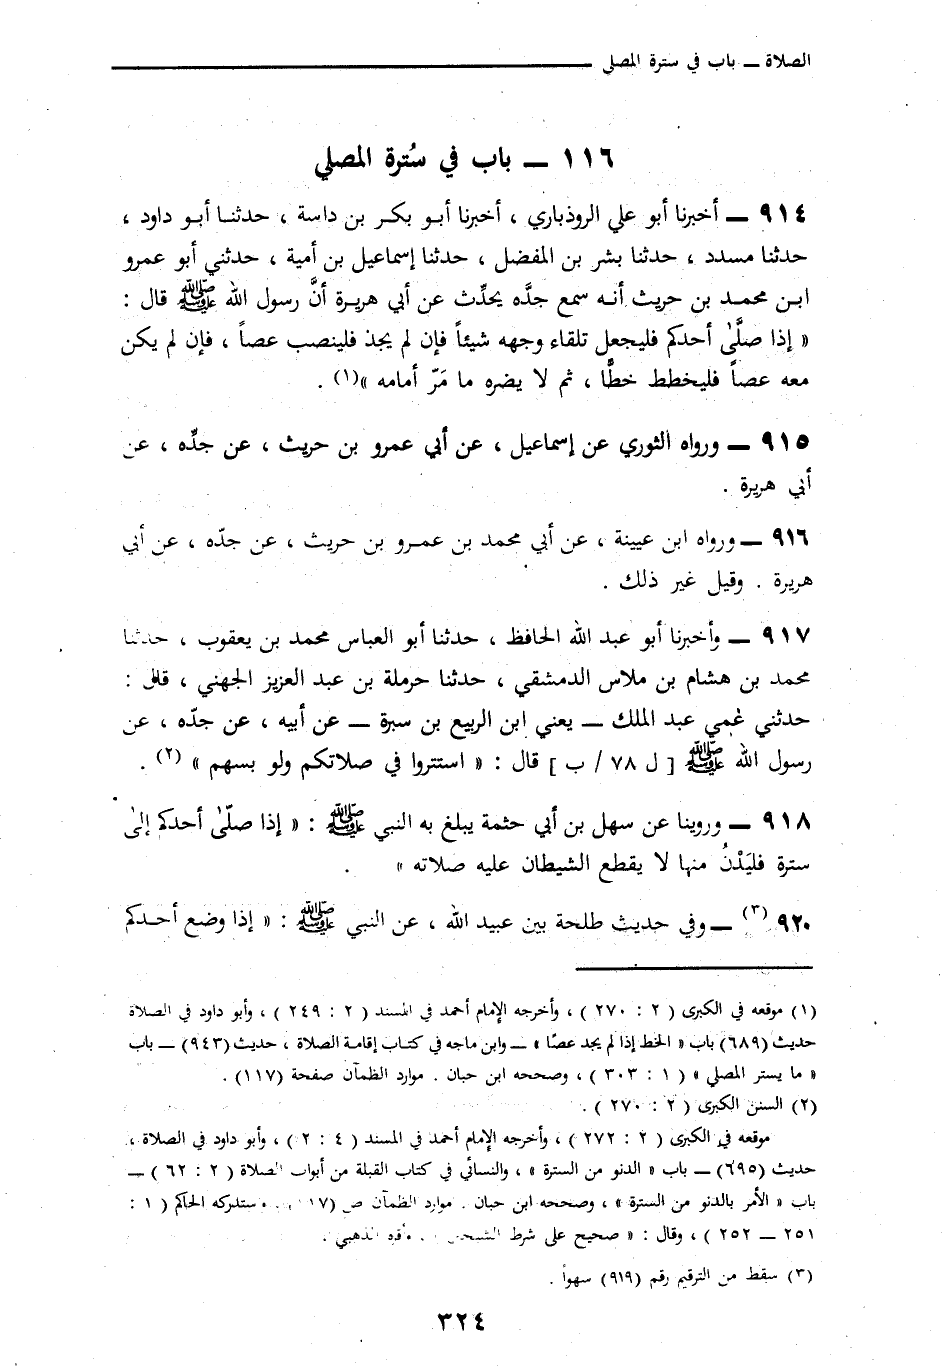 الصلاة ــ باب في سترة المصلي
١١٦ ــ باب في سُترة المصلي
٩١٤ ــ أخبرنا أبو علي الروذباري ، أخبرنا أبو بكر بن داسة ، حدثنا أبو داود ،
حدثنا مسدد ، حدثنا بشر بن المفضل ، حدثنا إسماعيل بن أمية ، حدثني أبو عمرو
ابن محمد بن حريث أنه سمع جدَّه يحدِّث عن أبي هريرة أنَّ رسول الله ﷺ قال :
« إذا صلَّىٰ أحدكم فليجعل تلقاء وجهه شيئاً فإن لم يجد فلينصب عصاً ، فإن لم يكن
معه عصاً فليخطط خطًّا ، ثم لا يضره ما مَرّ أمامه »(١) .
٩١٥ ــ ورواه الثوري عن إسماعيل ، عن أبي عمرو بن حريث ، عن جدِّه ، عن
أبي هريرة .
٩١٦ ــ ورواه ابن عيينة ، عن أبي محمد بن عمرو بن حريث ، عن جدّه ، عن أبي
هريرة . وقيل غير ذلك .
٩١٧ ــ وأخبرنا أبو عبد الله الحافظ ، حدثنا أبو العباس محمد بن يعقوب ، حدثنا
محمد بن هشام بن ملاس الدمشقي ، حدثنا حرملة بن عبد العزيز الجهني ، قال :
حدثني عمي عبد الملك ــ يعني ابن الربيع بن سبرة ــ عن أبيه ، عن جدّه ، عن
رسول الله ﷺ [ ل ٧٨ / ب ] قال : « استتروا في صلاتكم ولو بسهم » (٢) .
٩١٨ ــ وروينا عن سهل بن أبي حثمة يبلغ به النبي ﷺ : « إذا صلّىٰ أحدكم إلىٰ
سترة فليَدْنُ منها لا يقطع الشيطان عليه صلاته » .
٩٢٠ (٣) ــ وفي حديث طلحة بين عبيد الله ، عن النبي ﷺ : « إذا وضع أحدكم
(١) موقعه في الكبرى ( ٢ : ٢٧٠ ) ، وأخرجه الإمام أحمد في المسند ( ٢ : ٢٤٩ ) ، وأبو داود في الصلاة
حديث (٦٨٩) باب « الخط إذا لم يجد عصًا » ــ وابن ماجه في كتاب إقامة الصلاة ، حديث (٩٤٣) ــ باب
« ما يستر المصلي » ( ١ : ٣٠٣ ) ، وصححه ابن حبان . موارد الظمآن صفحة (١١٧) .
(٢) السنن الكبرى ( ٢ : ٢٧٠ ) .
موقعه في الكبرى ( ٢ : ٢٧٢ ) ، وأخرجه الإمام أحمد في المسند ( ٤ : ٢ ) ، وأبو داود في الصلاة ،
حديث (٦٩٥) ــ باب « الدنو من السترة » ، والنسائي في كتاب القبلة من أبواب الصلاة ( ٢ : ٦٢ ) ــ
باب « الأمر بالدنو من السترة » ، وصححه ابن حبان . موارد الظمآن ص (١١٧) مستدركه الحاكم ( ١ :
٢٥١ ــ ٢٥٢ ) ، وقال : « صحيح على شرط الشيخين الذهبي .
(٣) سقط من الترقيم رقم (٩١٩) سهواً .
٣٢٤